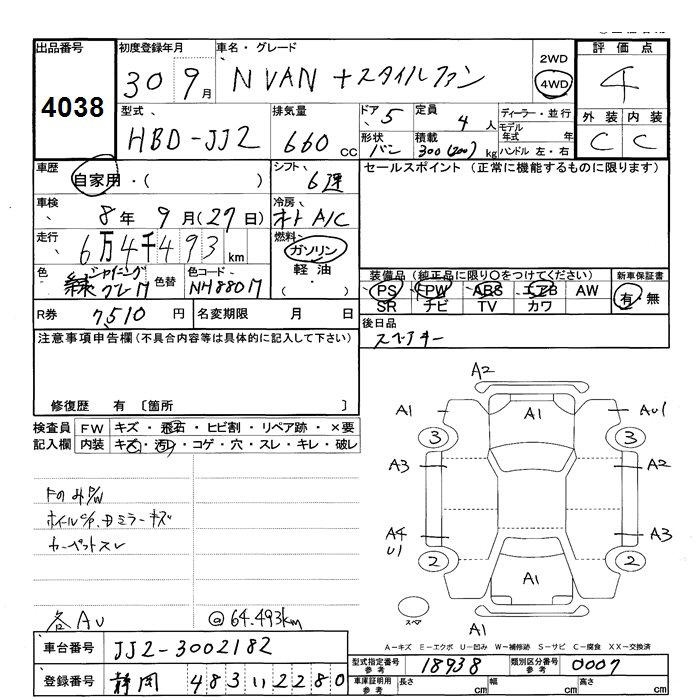 出品番号
4038
初度登録年月
30 9月
車名・グレード
N VAN +スタイルファン
2WD
4WD
評価点
4
外装 内装
C C
型式
HBD-JJ2
排気量
660 cc
ドア 5
形状 バン
定員 4人
積載 300(200)kg
ディーラー・並行
モデル年式 年
ハンドル 左・右
車歴
自家用・( )
シフト
6速
セールスポイント(正常に機能するものに限ります)
車検
8年9月(27日)
冷房
オートA/C
走行
6万4千493km
燃料
ガソリン
軽油
・( )
色
緑 シャイニング
色替
色コード
NH880M
装備品(純正品に限り○をつけてください)
PS PW ABS エアB AW
SR ナビ TV カワ
新車保証書
有・無
R券 7,510円
名変期限 月 日
後日品
スペアキー
注意事項申告欄(不具合内容等は具体的に記入して下さい)
修復歴 有〔箇所 〕
検査員記入欄
FW キズ・飛石・ヒビ割・リペア跡・×要
内装 キズ・汚レ・コゲ・穴・スレ・キレ・破レ
Fのみ P/W
ホイールC/P、キズ
カーペットスレ
各AU
@64.493km
A2
A1 A1 AU1
3 3
A3 A2
A4 A3
U1
2 2
A1
スペア
A1
A-キズ E-エクボ U-凹み W-補修跡 S-サビ C-腐食 XX-交換済
車台番号
JJ2-3002182
登録番号
静岡 483 い 2280
型式指定番号 参考
18938
類別区分番号 参考
0007
車庫証明用 参考
長さ cm 幅 cm 高さ cm